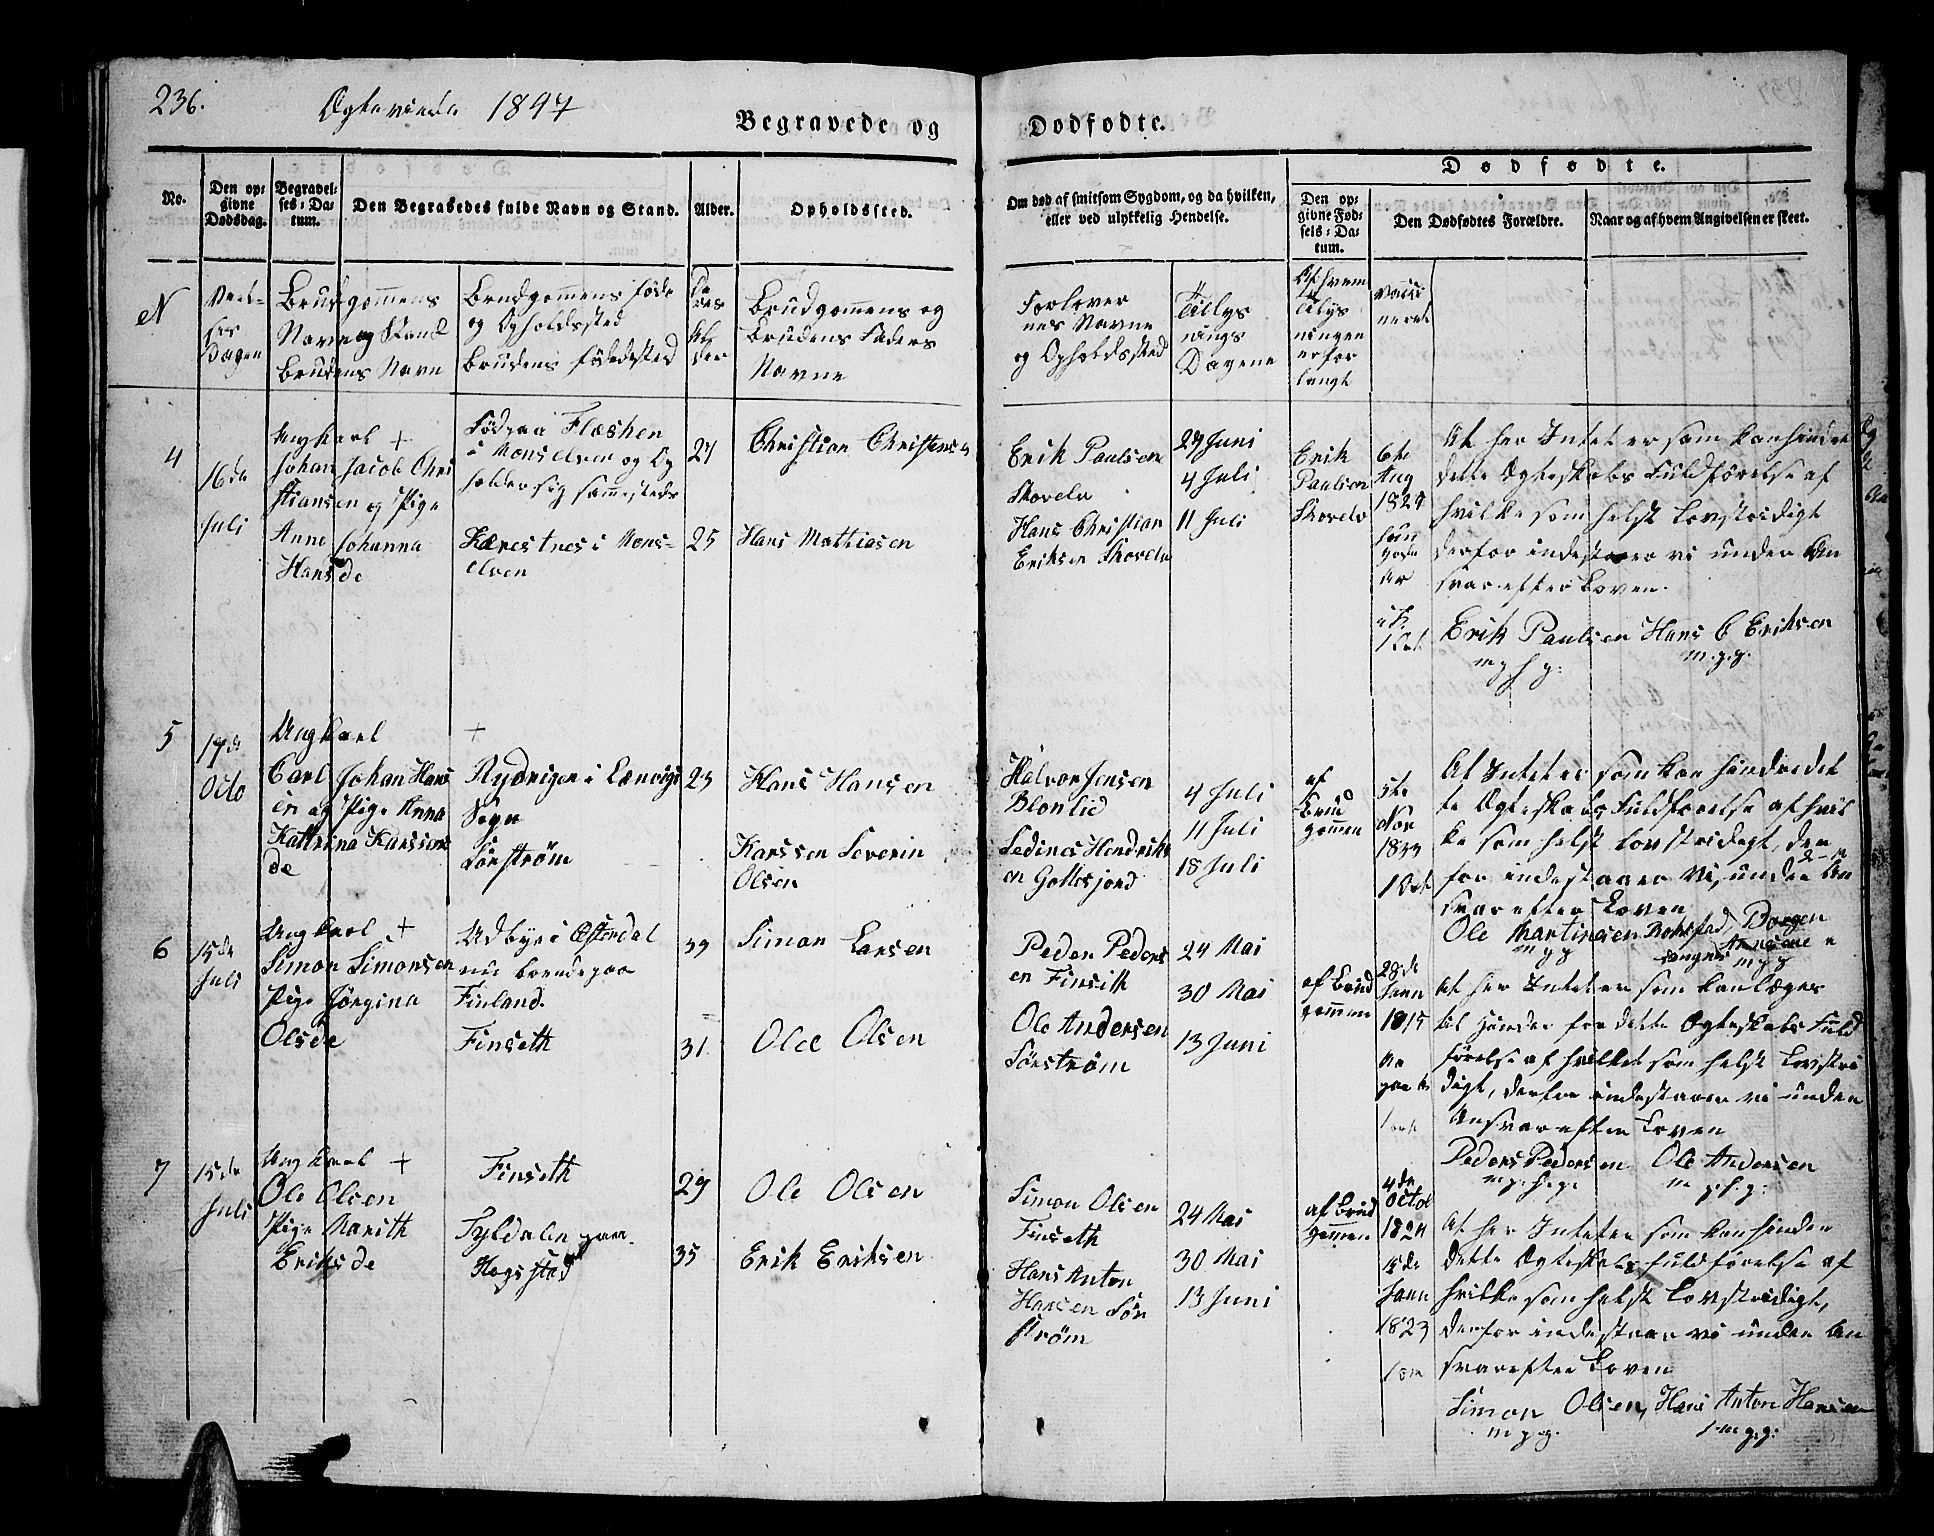 236.
Ægteviede 1847
Begravede og
Dødfødte.
No.
Den op-
givne
Dødsdag.
Begravel-
ses-Da-
tum.
Den Begravedes fulde Navn og Stand.
Alder.
Opholdssted.
Om død af smitsom Sygdom, og da hvilken,
eller ved ulykkelig Hendelse.
Dødfødte.
Den op-
givne Fød-
sels-Da-
tum.
Den Dødfødtes Forældre.
Naar og af hvem Angivelsen er skeet.
N
Dagen
Brudgommens
Navn og Stand
Brudens Navn
Brudgommens Føde
og Opholdssted
Brudens Fødested
De
res
Al
der
Brudgommens og
Brudens Faders
Navne
Forlover
nes Navne
og Opholdssted
Tillys
nings
Dagene
Af hvem
Tillys
ningen
er for
langt
vacci
neret
4
16de
Juli
Ungkarl +
Johan Jacob Chri
stiansen og Pige
Anne Johanna
Hansde
Født paa Fleshen
i Monselven og Op
holder sig sammesteds
i Mons-
elven
27
25
Christian Christensen
Hans Mathiesen
Erik Paulsen
Skovelv
Hans Christian
Eriksen Skovelv
27 Juni
4 Juli
11 Juli
Erik
Paulsen
Skovelv
6te
Aug
1827
At her Intet er som kan hindre
dette Ægteskabs Fuldførelse af
hvilke som helst Lovstridigt
derfor indestaaer vi under An
svar efter Loven.
Erik Paulsen Hans C Eriksen
m.p.g.
5
17de
Octo
Ungkarl +
Carl Johan Hans
en og Pige Anna
Kathrina Karsens
de
Rydningen i Lænvigs
Sogn
Sørstrøm
23
Hans Hansen
Karssen Severin
Olsen
Halvor Jensen
Blomlid
Sedines Hendriks
en Gottesjord
4 Juli
11 Juli
18 Juli
af
Brud
gommen
5te
Nov
18
At Intet er som kan hindre det
te Ægteskabs Fuldførelse af hvil
ke som helst Lovstridigt, der
for indestaaer Vi, under An
svar efter Loven
Ole Martinesen
m p g
6
15de
Juli
Ungkarl +
Simon Simonsen
Pige Jørgina
Olsde
Udbye i Østerdal
nu boende paa
Finland.
Finseth
33
31
Simon Larsen
Ole Olsen
Peder Peders
en Finsith
Ole Andersen
Sørstrøm
24 Mai
30 Mai
13 Juni
af Brud
gommen
28de
Jann
1815
At her Intet er som kan læges
til Hinder for dette Ægteskabs Fuld
førelse af hvilket som helst Lovstri
digt, derfor indestaaer vi under
Ansvar efter Loven
Peders Pedersen Ole Andersen
m.p.h.g. m.p.h.g.
7
15de
Juli
Ungkarl +
Ole Olsen
Pige Marith
Eriksde
Finseth
Tyldalen paa
Hogstad
29
35
Ole Olsen
Erik Eriksen
Simon Olsen
Finseth
Hans Anton
Hansen Sør
strøm
24 Mai
30 Mai
13 Juni
af Brud
gommen
4de
Octob
1824
Jann
1823
At her Intet er som kan hinder
dette Ægteskabs fuldførelse af
hvilke som helst Lovstridigt,
derfor indestaaer vi under An
svar efter Loven
Simon Olsen, Hans Anton Hansen
m p g. m p g.